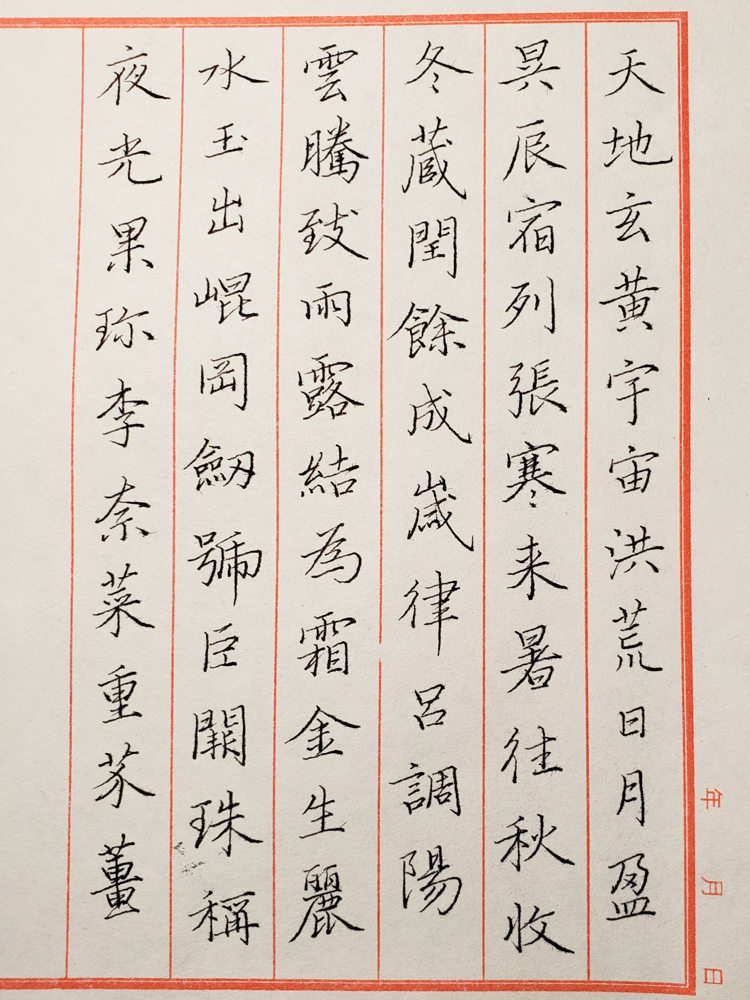 天地玄黃宇宙洪荒日月盈
昃辰宿列張寒来暑往秋收
冬蔵閏餘成嵗律呂調陽
雲騰致雨露結為霜金生麗
水玉出崐岡劒號臣闕珠稱
夜光果珎李奈菜重芥薑
年 月 日